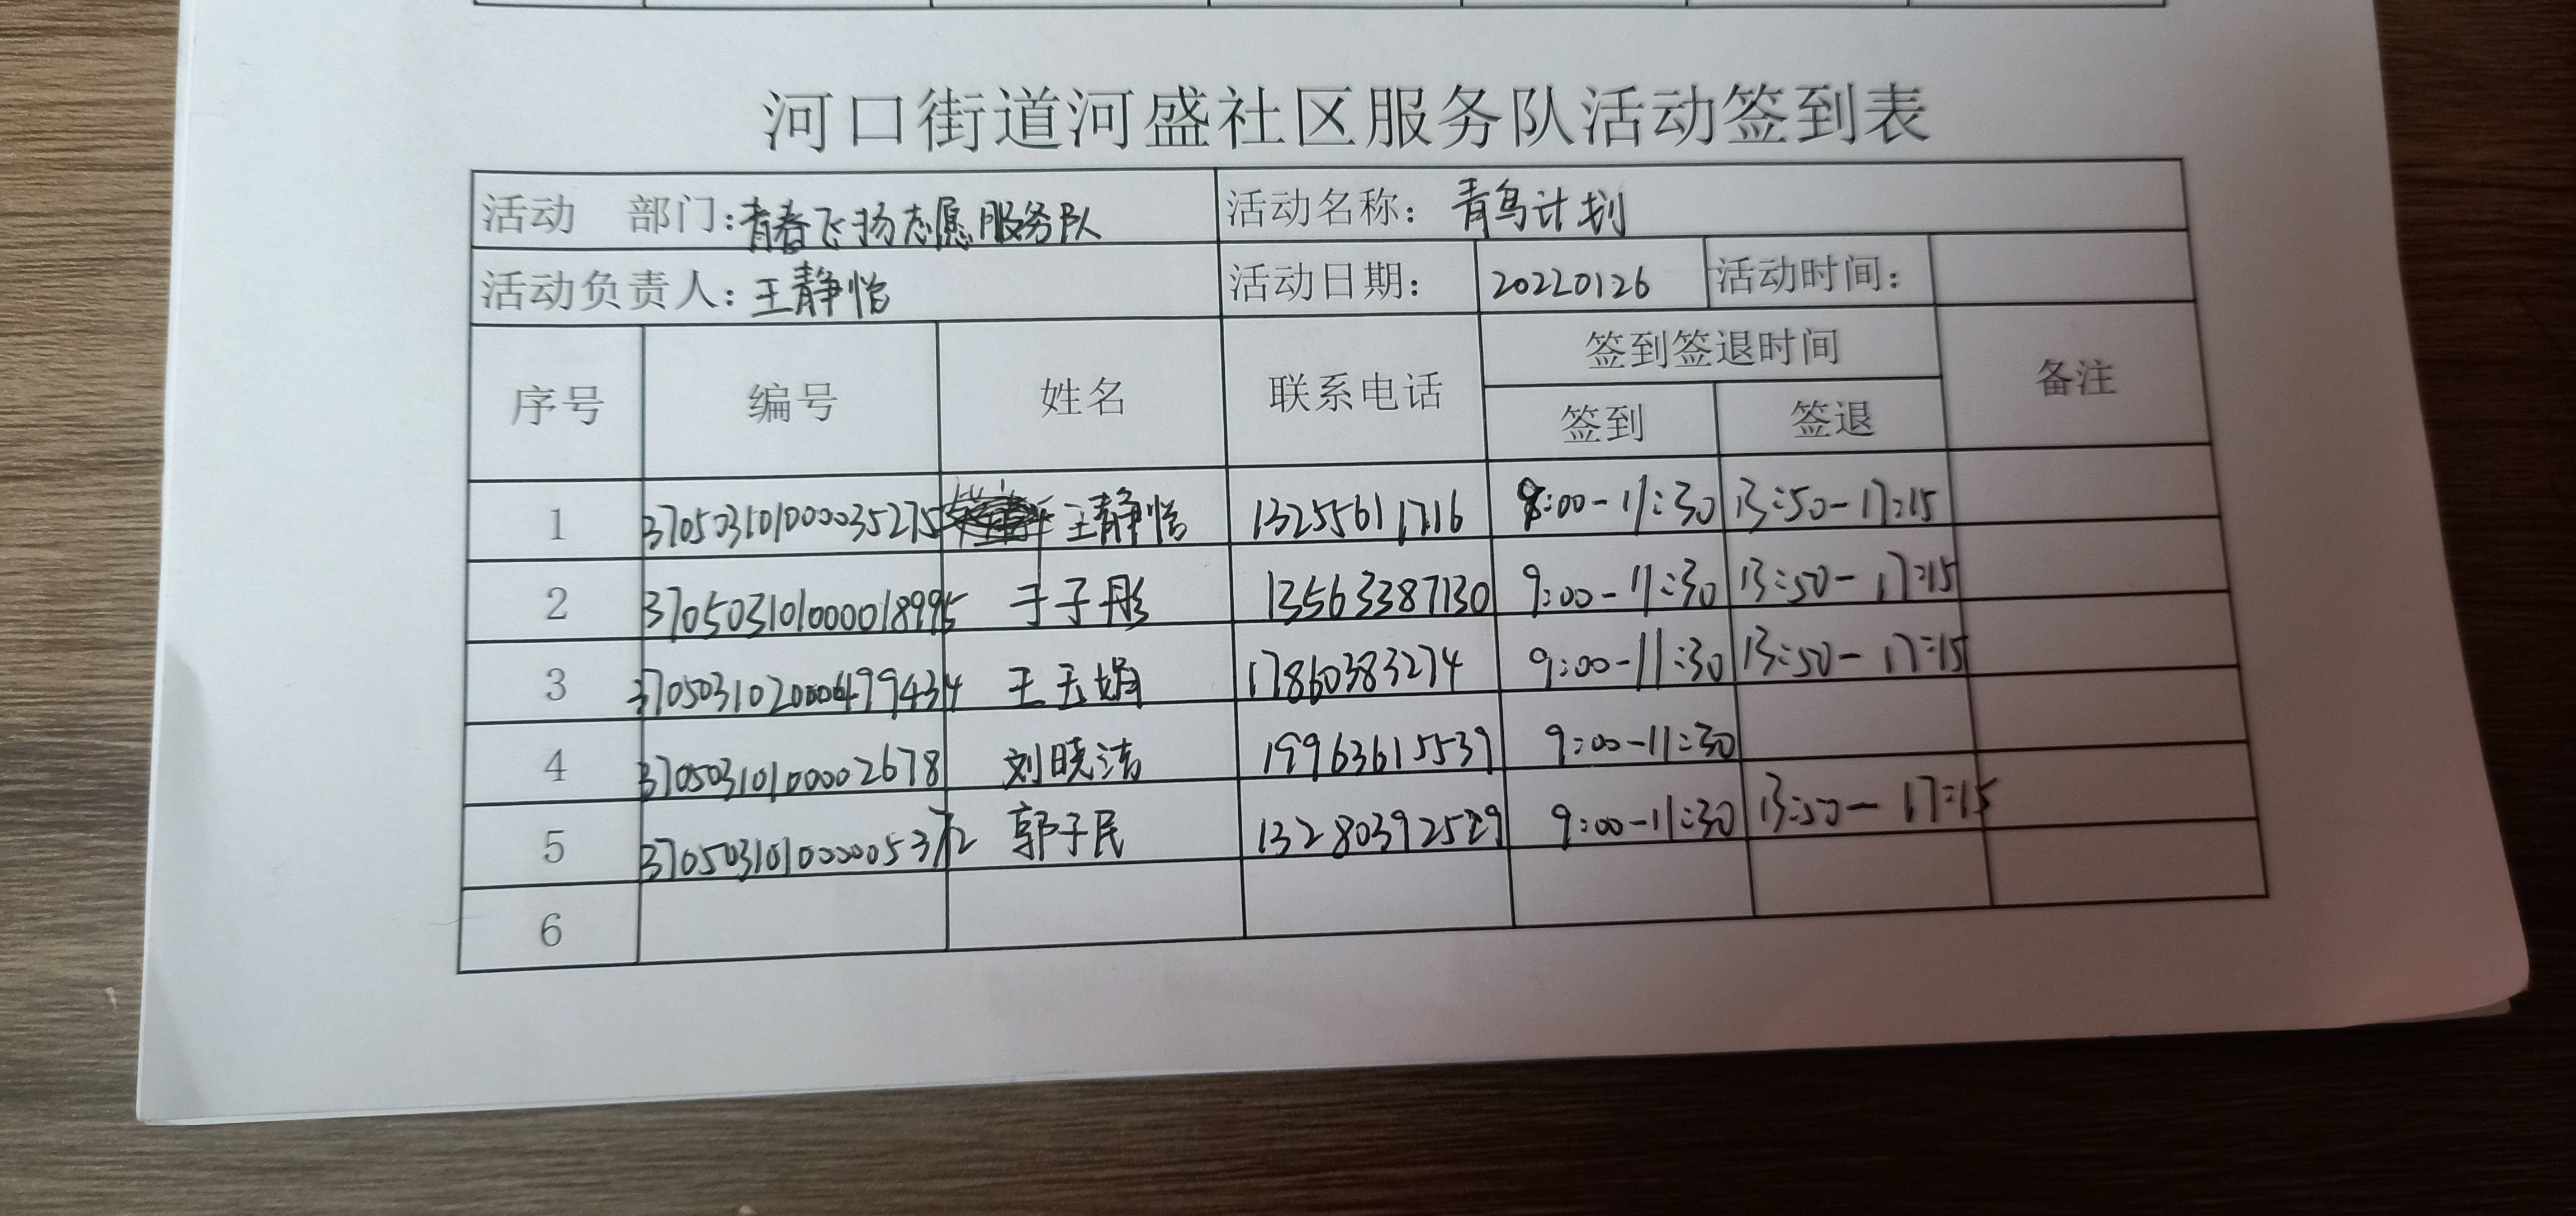 河口街道河盛社区服务队活动签到表
活动 部门:青春飞扬志愿服务队 活动名称：青鸟计划
活动负责人：王静怡 活动日期： 20220126 活动时间：
序号 编号 姓名 联系电话 签到签退时间 备注
签到 签退
1 370503101000035275 王静怡 13255611716 9:00-11:30 13:50-17:15
2 370503101000018995 于子彤 13563387130 9:00-11:30 13:50-17:15
3 王玉娟 17860383274 9:00-11:30 13:50-17:15
4 37050310100002678 刘晓洁 19963615539 9:00-11:30
5 郭子民 13280392529 9:00-11:30 13:50-17:15
6